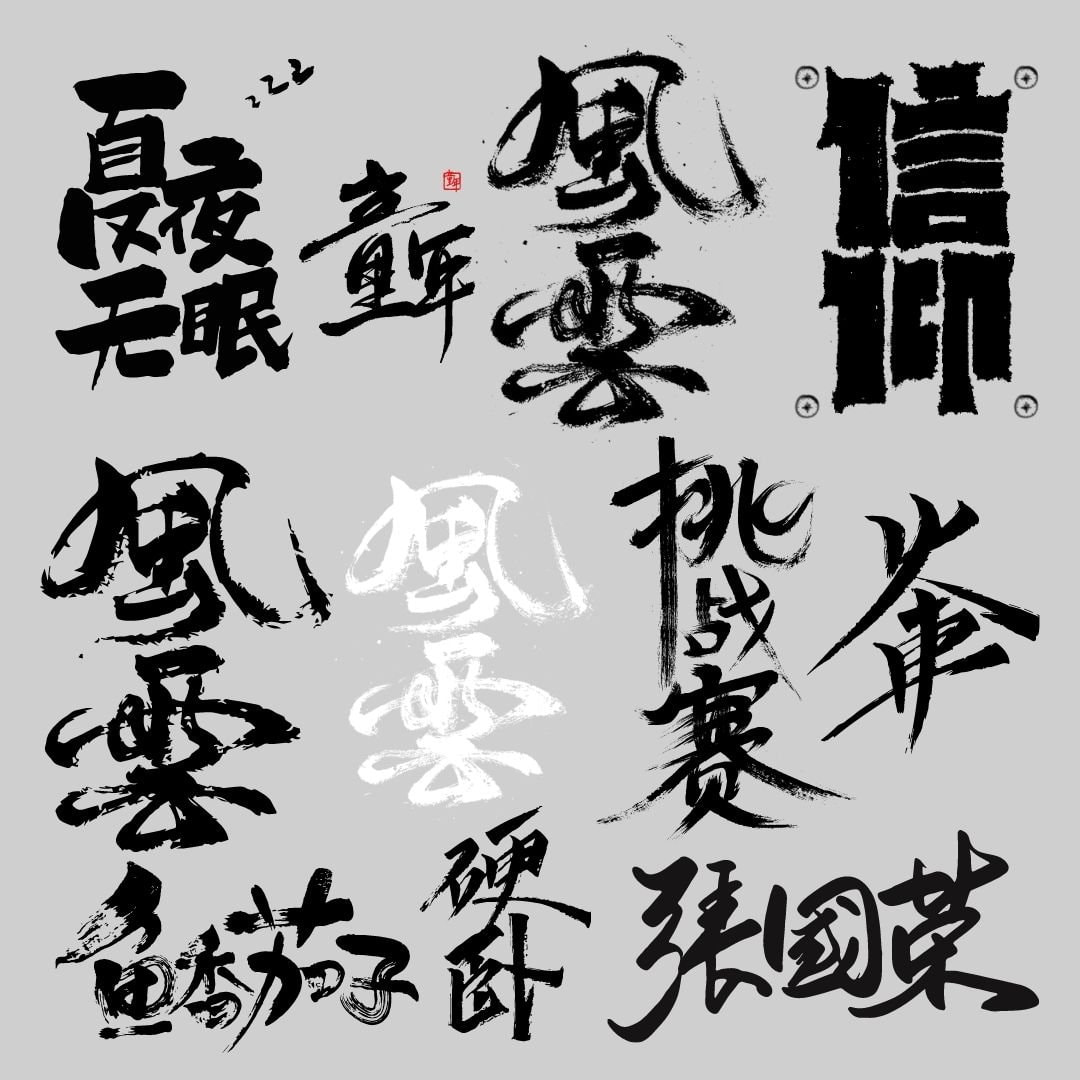 zzz
夏夜
无眠
童年
風雲
信仰
風雲
風雲
挑战赛
鱼香茄子
硬卧
張國荣